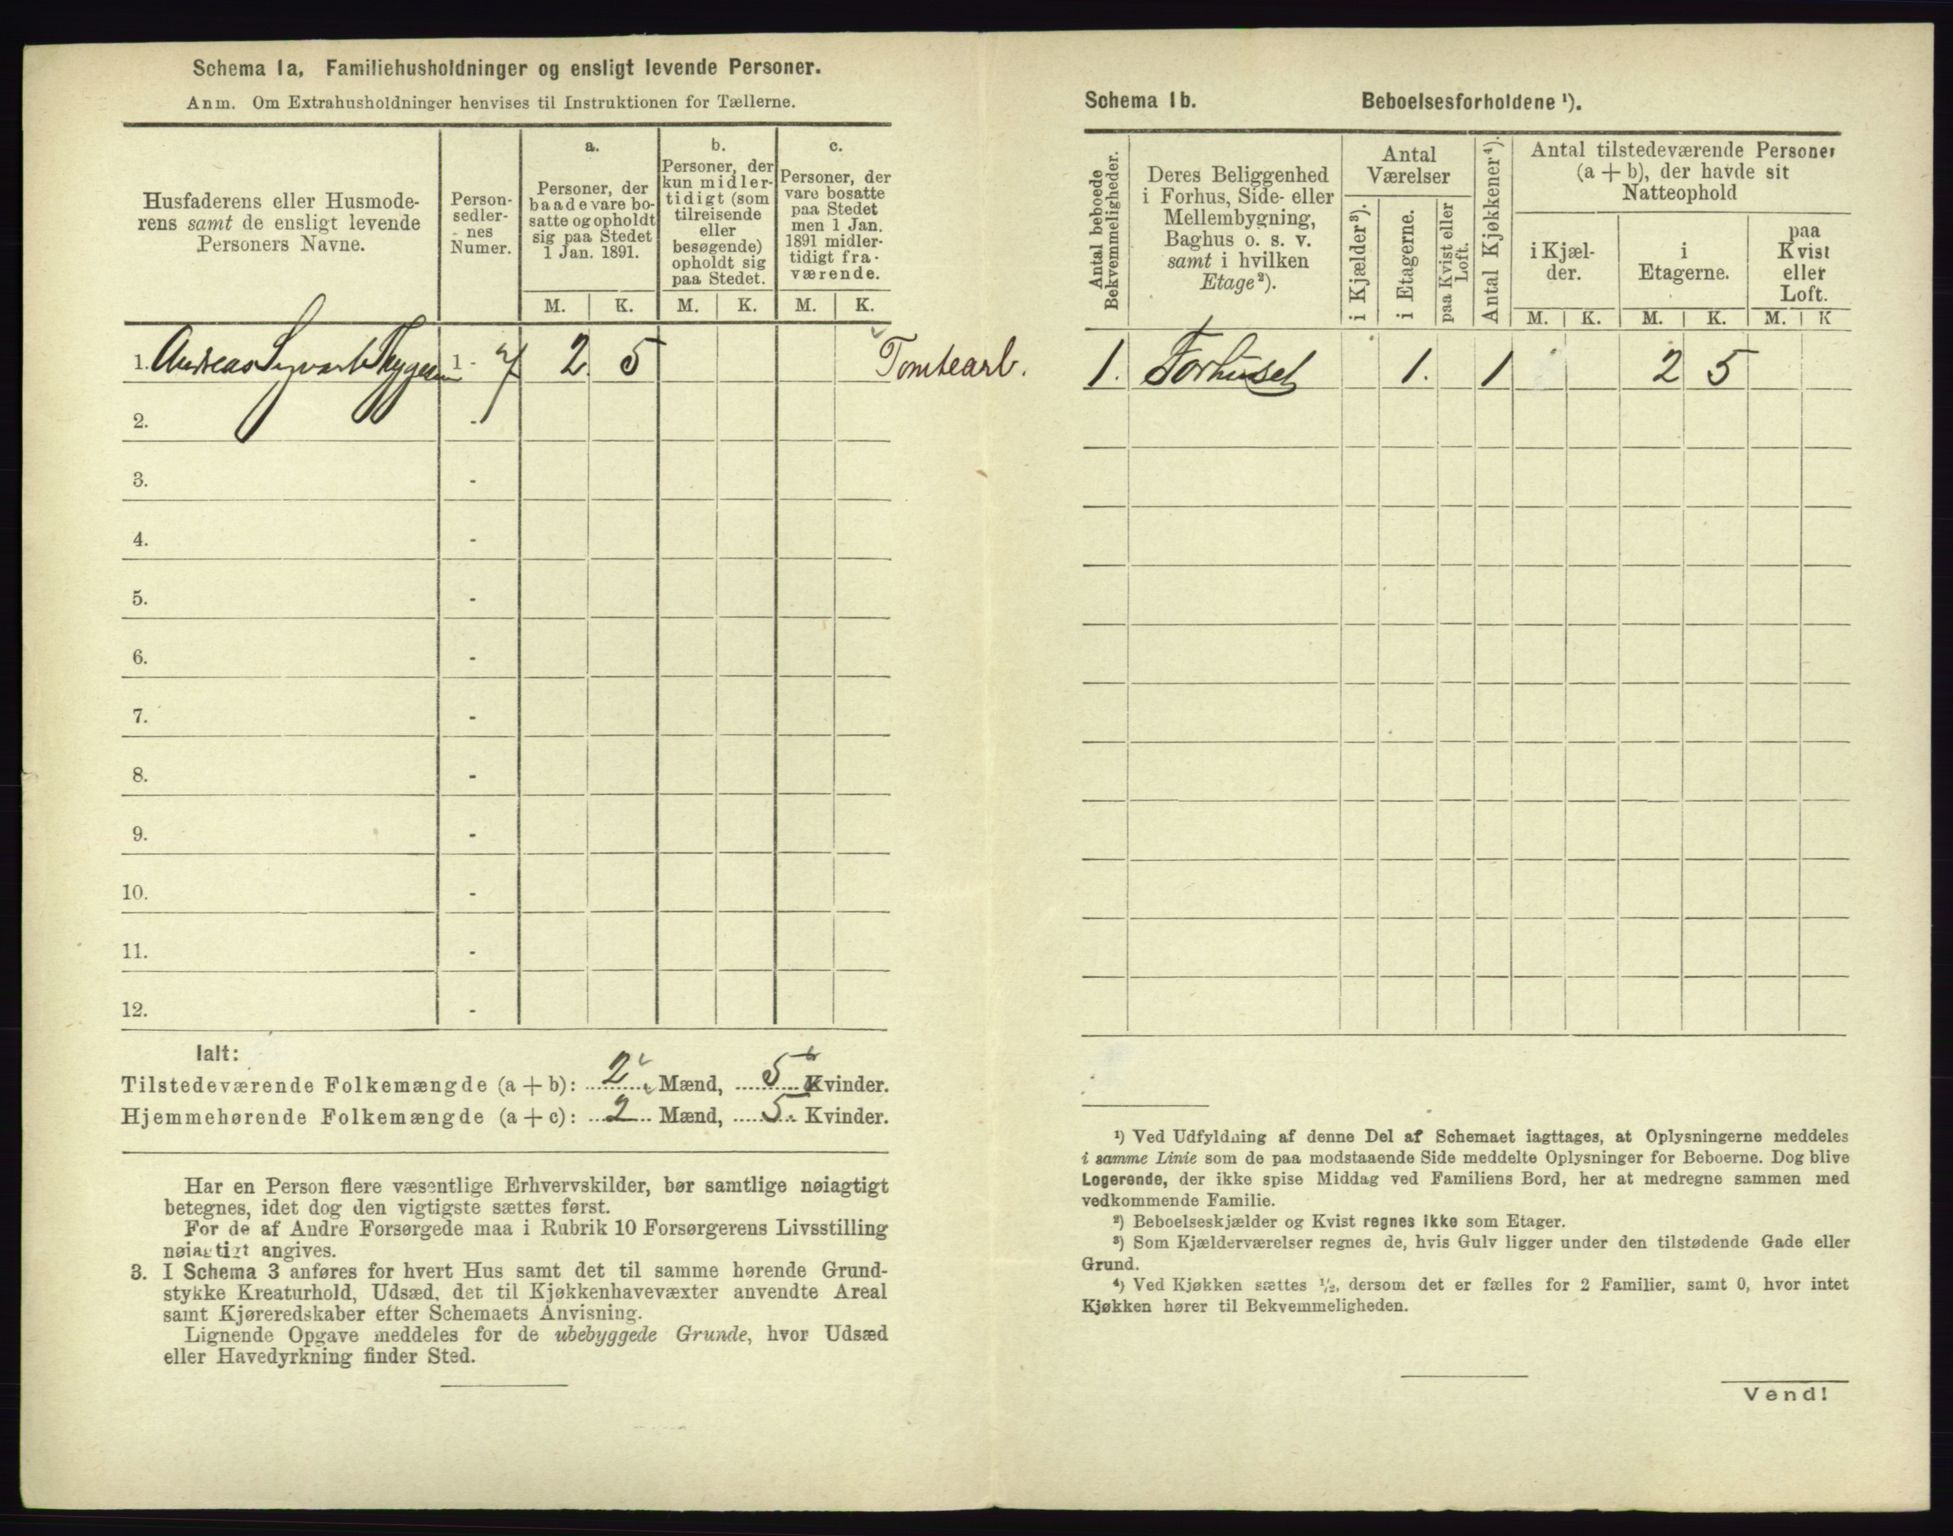 Schema 1a, Familiehusholdninger og ensligt levende Personer.
Anm. Om Extrahusholdninger henvises til Instruktionen for Tællerne.
Husfaderens eller Husmode-
rens samt de ensligt levende
Personers Navne.
Person-
sedler-
nes
Numer.
a.
Personer, der
baade vare bo-
satte og opholdt
sig paa Stedet
1 Jan. 1891.
b.
Personer, der
kun midler-
tidigt (som
tilreisende
eller
besøgende)
opholdt sig
paa Stedet.
c.
Personer, der
vare bosatte
paa Stedet
men 1 Jan.
1891 midler-
tidigt fra-
værende.
M. K. M. K. M. K.
1. Andreas Syvart Tryggesen 1 - 7 2 5 Tomtearb.
2. -
3. -
4. -
5. -
6. -
7. -
8. -
9. -
10. -
11. -
12. -
Ialt:
Tilstedeværende Folkemængde (a + b): 2 Mænd, 5 Kvinder.
Hjemmehørende Folkemængde (a + c): 2 Mænd, 5 Kvinder.
Har en Person flere væsentlige Erhvervskilder, bør samtlige nøiagtigt
betegnes, idet dog den vigtigste sættes først.
For de af Andre Forsørgede maa i Rubrik 10 Forsørgerens Livsstilling
nøiagtigt angives.
3. I Schema 3 anføres for hvert Hus samt det til samme hørende Grund-
stykke Kreaturhold, Udsæd, det til Kjøkkenhavevæxter anvendte Areal
samt Kjøreredskaber efter Schemaets Anvisning.
Lignende Opgave meddeles for de ubebyggede Grunde, hvor Udsæd
eller Havedyrkning finder Sted.
Schema 1b. Beboelsesforholdene ¹).
Antal beboede
Bekvemmeligheder.
Deres Beliggenhed
i Forhus, Side- eller
Mellembygning,
Baghus o. s. v.
samt i hvilken
Etage²).
Antal
Værelser
i Kjælder³).
i Etagerne.
paa Kvist eller
Loft.
Antal Kjøkkener⁴).
Antal tilstedeværende Personer
(a + b), der havde sit
Natteophold
i Kjæl-
der.
i
Etagerne.
paa
Kvist
eller
Loft.
M. K. M. K. M. K
1. Forhuset 1. 1 2 5
¹) Ved Udfyldning af denne Del af Schemaet iagttages, at Oplysningerne meddeles
i samme Linie som de paa modstaaende Side meddelte Oplysninger for Beboerne. Dog blive
Logerende, der ikke spise Middag ved Familiens Bord, her at medregne sammen med
vedkommende Familie.
²) Beboelseskjælder og Kvist regnes ikke som Etager.
³) Som Kjælderværelser regnes de, hvis Gulv ligger under den tilstødende Gade eller
Grund.
⁴) Ved Kjøkken sættes ½, dersom det er fælles for 2 Familier, samt 0, hvor intet
Kjøkken hører til Bekvemmeligheden.
Vend!